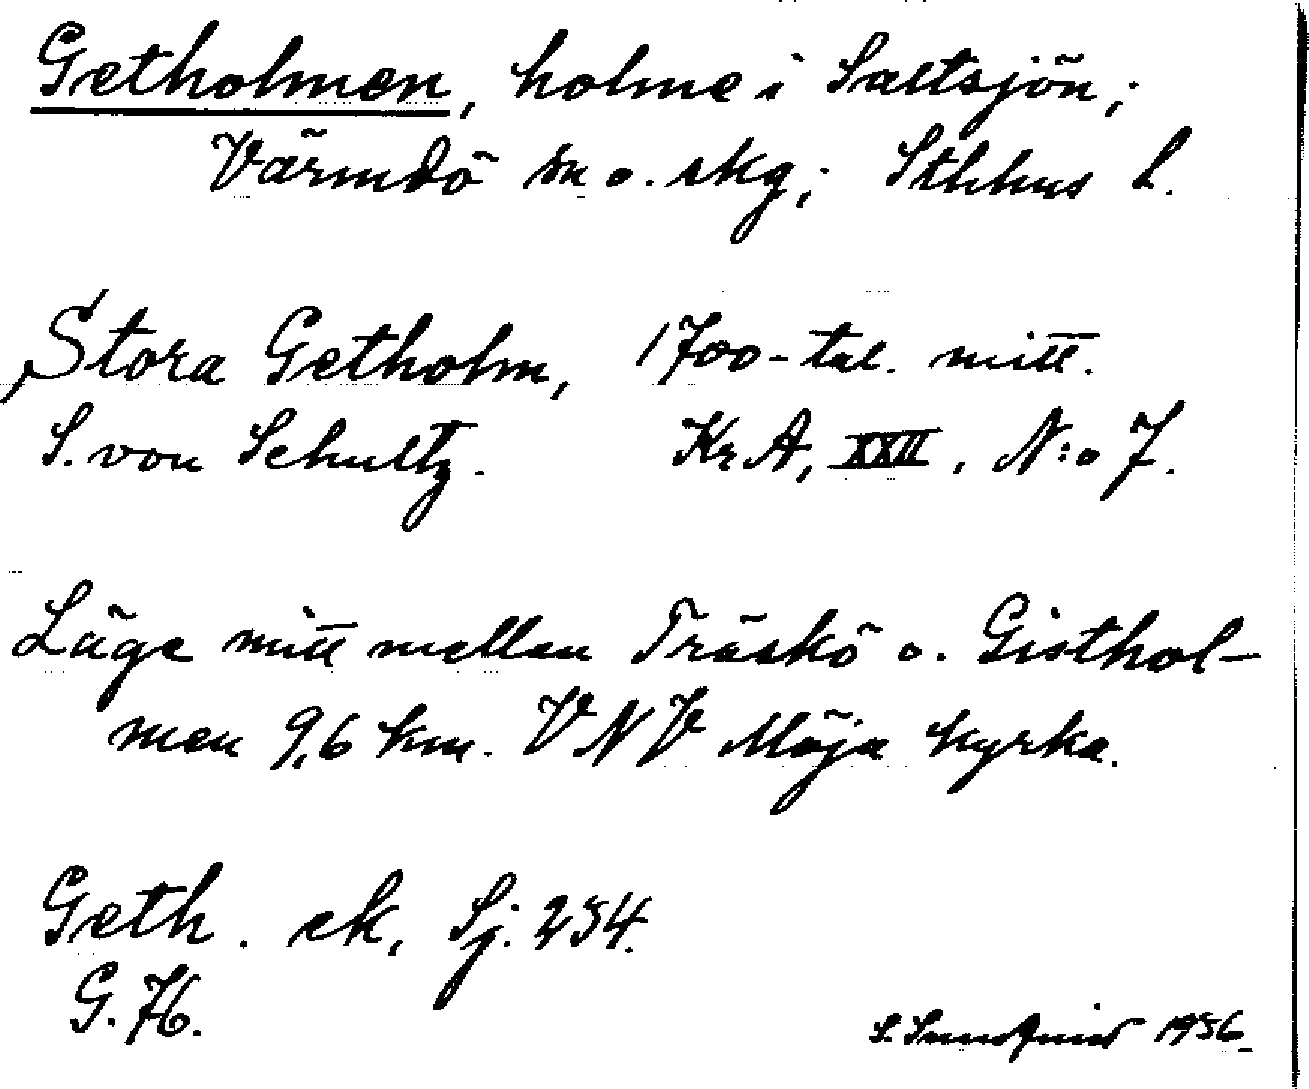 Getholmen, holme i Saltsjön;
Värmdö sn o. skg; Sthlms l.
Stora Getholm, 1700-tal. mitt.
S. von Schultz. KrA, XXII, N:o 7.
Läge mitt mellan Träskö o. Gisthol-
men 9,6 km. VNV Möja kyrka.
Geth. ek, Sj. 254.
G. 76.
S. Sundquist 1956.